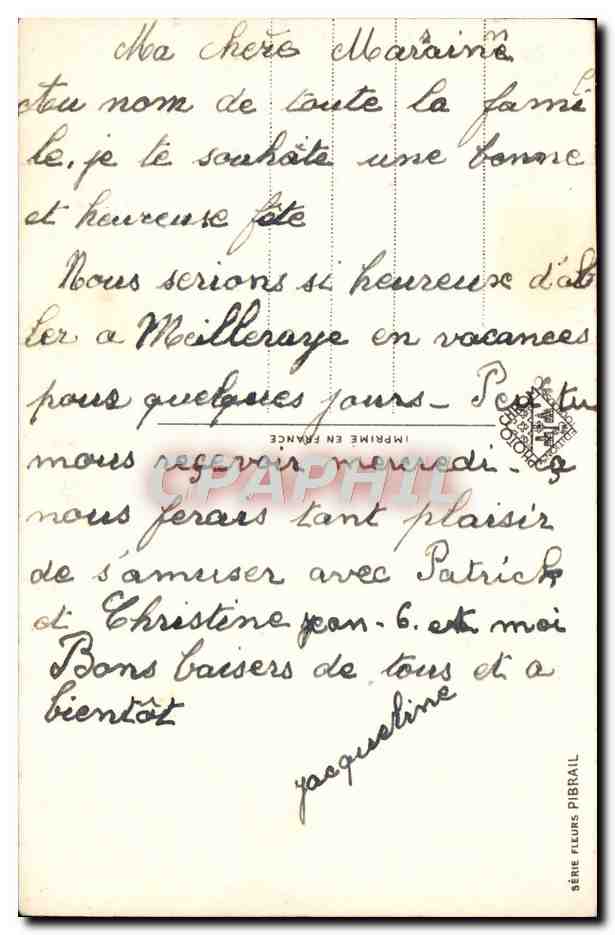 Ma chère Maraine
Au nom de toute la famil
le, je te souhaite une bonne
et heureuse fête
Nous serions si heureux d'al
ler a Meilleraye en vacances
pour quelques jours - Peu tu
nous reçevoir mercredi - ça
nous ferais tant plaisir
de s'amuser avec Patrick
et Christine jean-G. et moi
Bons baisers de tous et a
bientôt
jacqueline
IMPRIMÉ EN FRANCE
CPAPHIL
SÉRIE FLEURS PIBRAIL